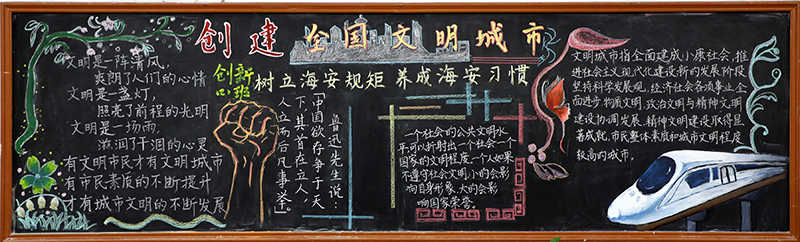 创建全国文明城市
创新
口班
树立海安规矩 养成海安习惯
文明是一阵清风，
爽朗了人们的心情
文明是一盏灯，
照亮了前程的光明
文明是一场雨，
滋润了干涸的心灵
有文明市民才有文明城市
有市民素质的不断提升
才有城市文明的不断发展
鲁迅先生说：
“中国欲存争于天
下，其首在立人，
人立而后凡事举”。
一个社会的公共文明水
平可以折射出一个社会一个
国家的文明程度，一个人如果
不遵守社会文明，小的会影
响自身形象，大的会影
响国家荣誉。
文明城市指全面建成小康社会，推
进社会主义现代化建设新的发展阶段，
坚持科学发展观，经济社会各项事业
全面进步，物质文明，政治文明与精神文明
建设协调发展，精神文明建设取得显
著成就，市民整体素质和城市文明程度
较高的城市。